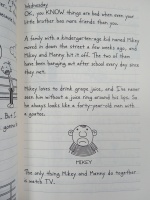 Wednesday
OK, you KNOW things are bad when even your
little brother has more friends than you.
A family with a kindergarten-age kid named Mikey
moved in down the street a few weeks ago, and
Mikey and Manny hit it off. The two of them
have been hanging out after school every day since
they met.
Mikey loves to drink grape juice, and I've never
seen him without a juice ring around his lips. So
he always looks like a forty-year-old man with
a goatee.
MIKEY
The only thing Mikey and Manny do together
is watch TV.